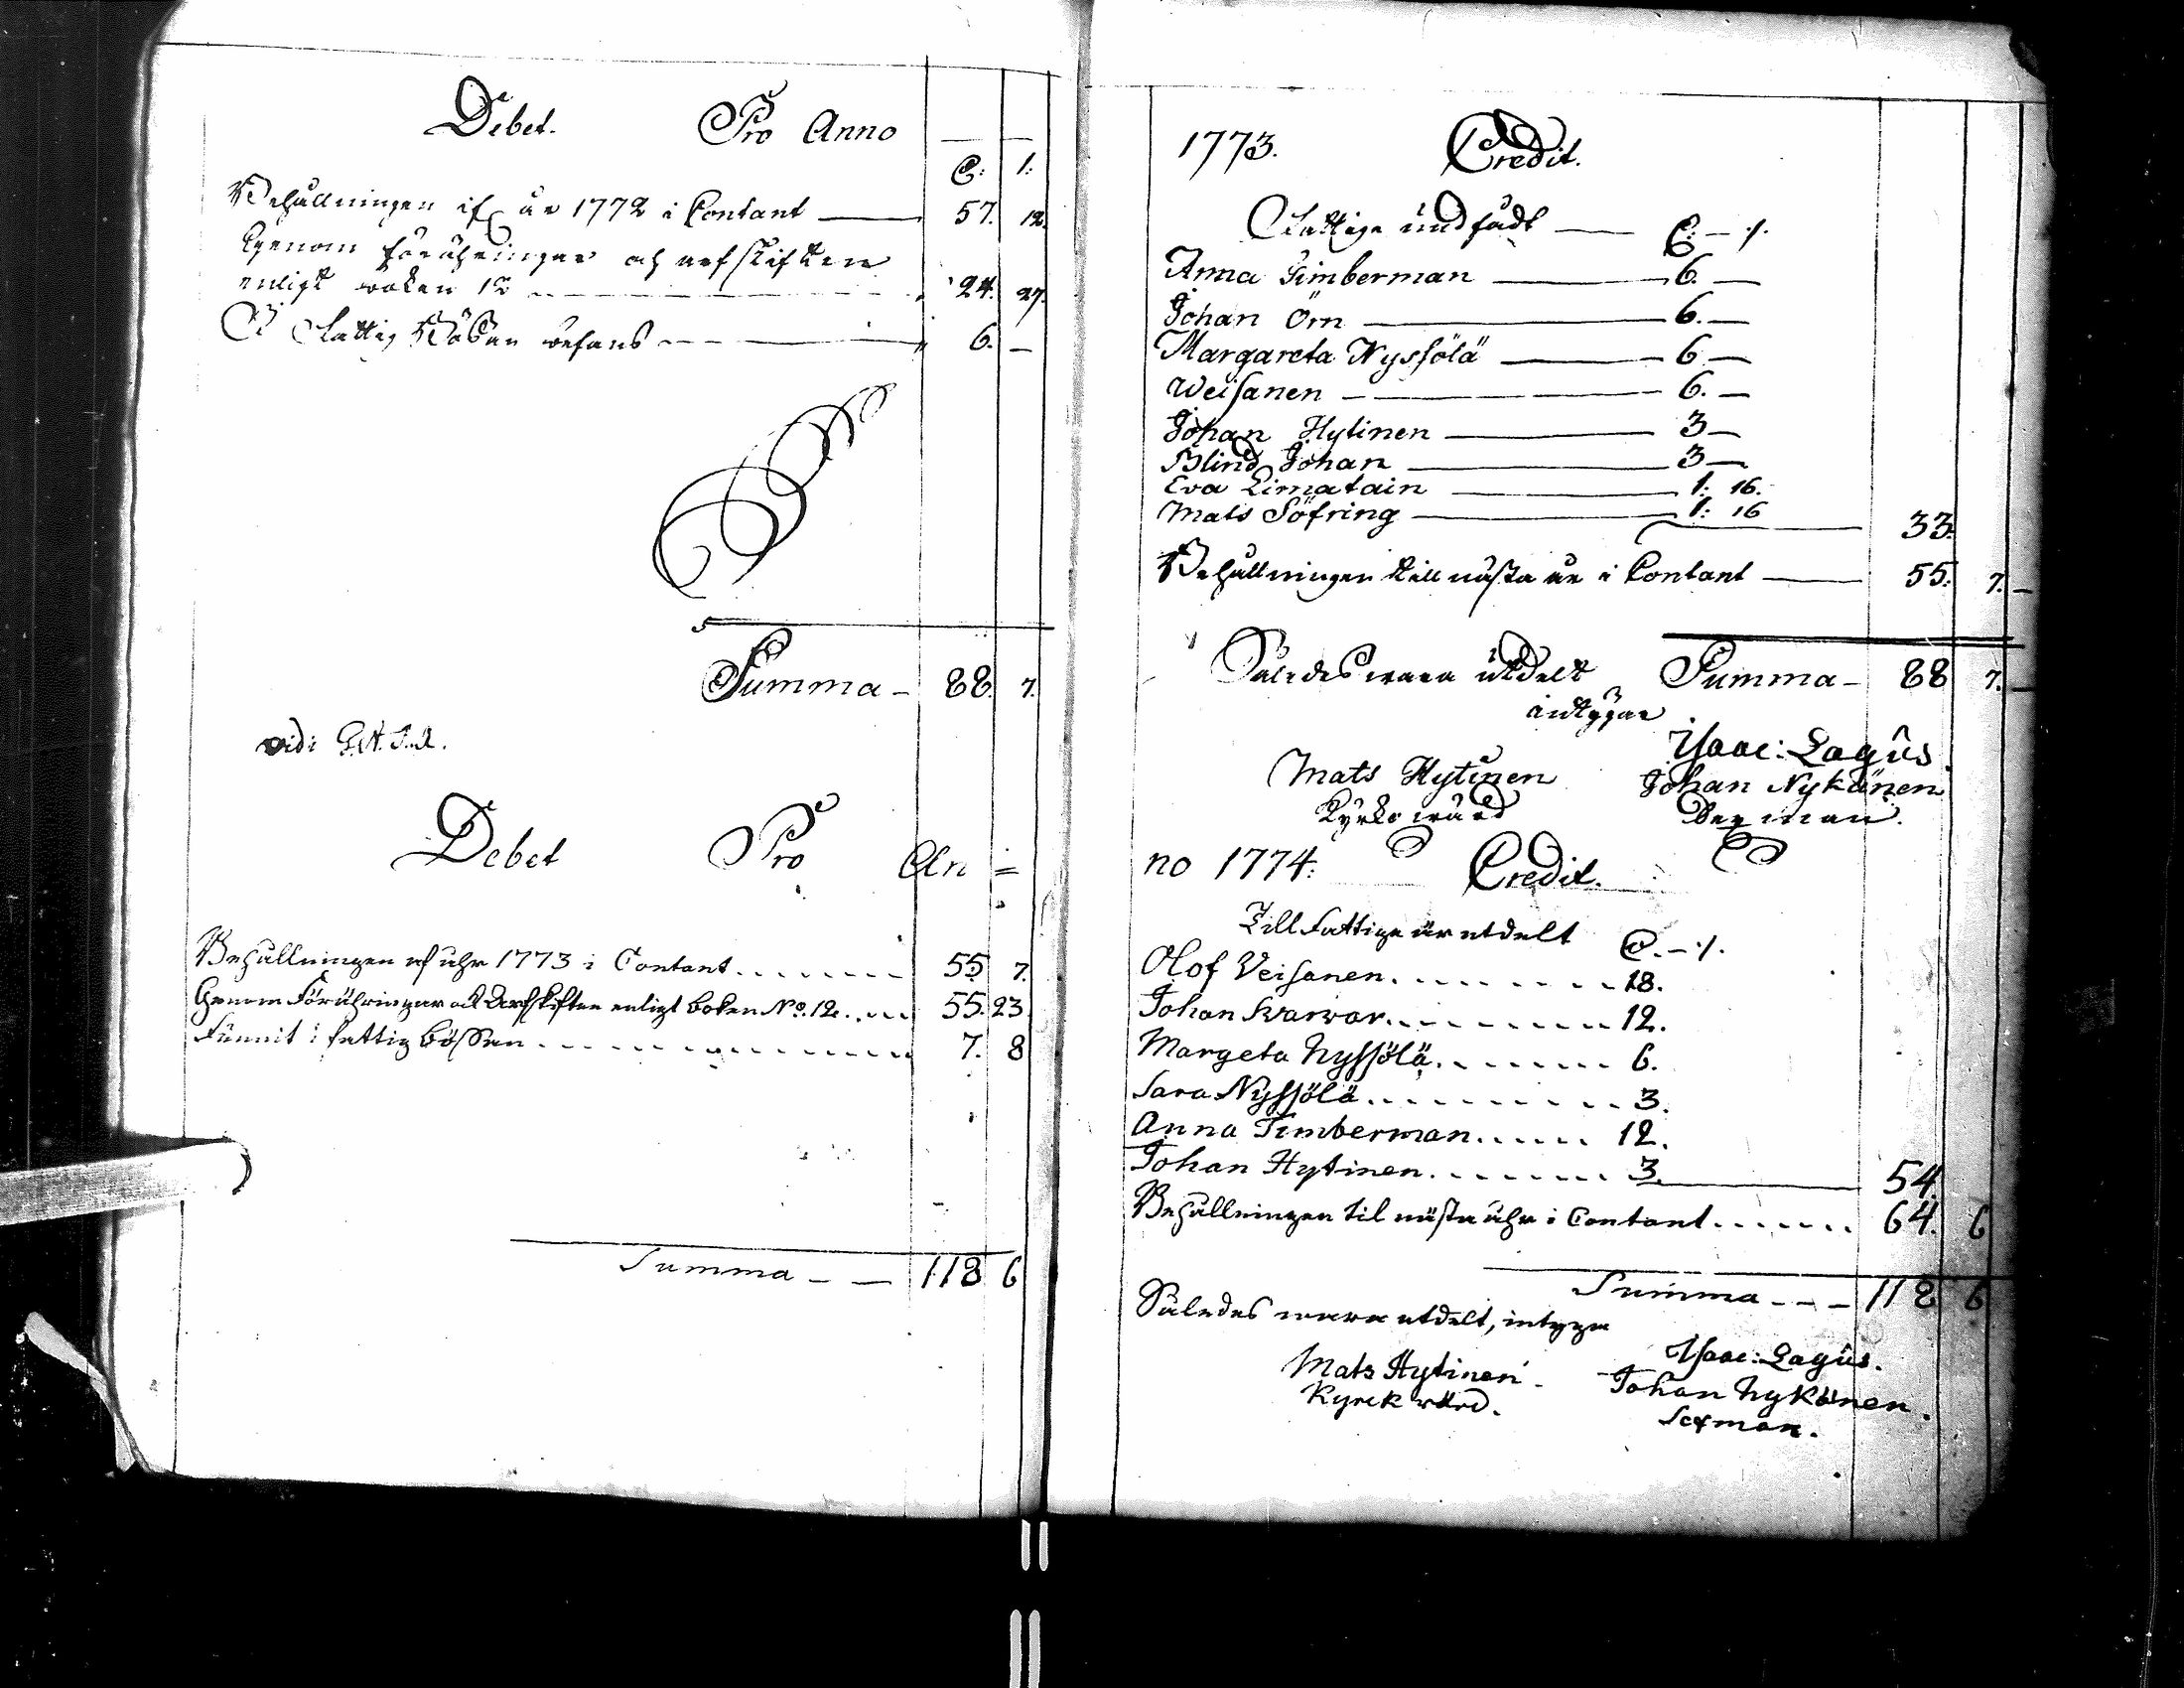 Debet. Pro Anno
C: 1:
Behållningen af år 1772 i Contant 57. 12.
Genom förähringar och arfskiften
enligt boken 12 24. 27.
I Fattig Bösan befans 6. —
Summa — 88. 7.
vidi
Debet Pro An =
Behållningen af åhr 1773 i Contant 55 7.
Genom Förähringar och arfskiften enligt boken No. 12. 55. 23
Funnit i fattig bössan 7. 8
Summa — — 118 6
1773. Credit.
Fattige undfådt
Anna Timberman 6. —
Johan Örn 6. —
Margareta Nyssölä 6 —
Weisanen 6. —
Johan Hytinen 3 —
Blind Johan 3 —
Eva Limatain 1: 16.
Mats Söfring 1: 16
33.
Behållningen till nästa år i Contant 55. 7. —
Således vara utdelt Summa — 88 7. —
intygar
Isaac: Lagus.
Mats Hytinen Johan Nykänen
Kyrko värd Sexman.
no 1774: Credit.
Till Fattige är utdelt
Olof Veisanen. 18.
Johan Karvar. 12.
Margeta Nyssölä. 6.
Sara Nyssölä. 3.
Anna Timberman. 12.
Johan Hytinen. 3. 54.
Behållningen til nästa åhr i Contant. 64. 6
Summa — — 118 6
Således vara utdelt, intyga
Isaac: Lagus.
Mats Hytinen. Johan Nykänen.
Kyrck värd. Sexman.